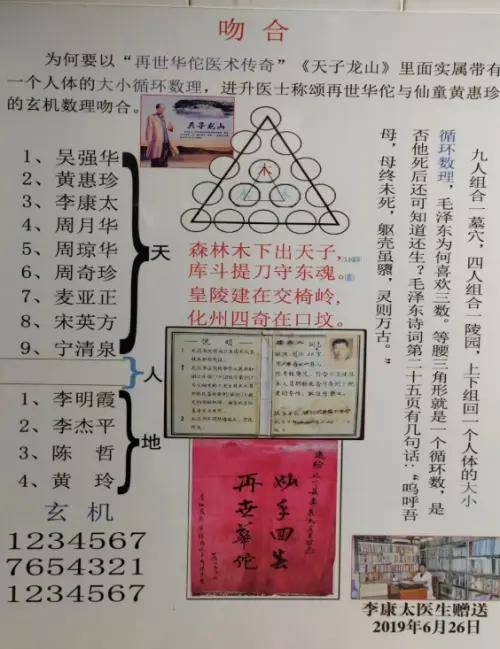 吻合
为何要以“再世华佗医术传奇”《天子龙山》里面实属带有
一个人体的大小循环数理，进升医士称颂再世华佗与仙童黄惠珍
的玄机数理吻合。
天子龙山
木
1、吴强华
2、黄惠珍
3、李康太
4、周月华
5、周琼华
6、周奇珍
7、麦亚正
8、宋英方
9、宁清泉
天
人
1、李明霞
2、李杰平
3、陈 哲
4、黄 玲
地
玄机
1234567
7654321
1234567
森林木下出天子，
库斗提刀守东魂。
皇陵建在交椅岭，
化州四奇在口坟。
九人组合一墓穴，四人组合一陵园，上下组回一个人体的大小
循环数理，毛泽东为何喜欢三数。等腰三角形就是一个循环数，是
否他死后还可知道还生？毛泽东诗词第二十五页有几句话：“呜呼吾
母，母终未死，躯壳虽隳，灵则万古。”
说明
送给
妙手回生
再世华佗
李康太医生赠送
2019年6月26日